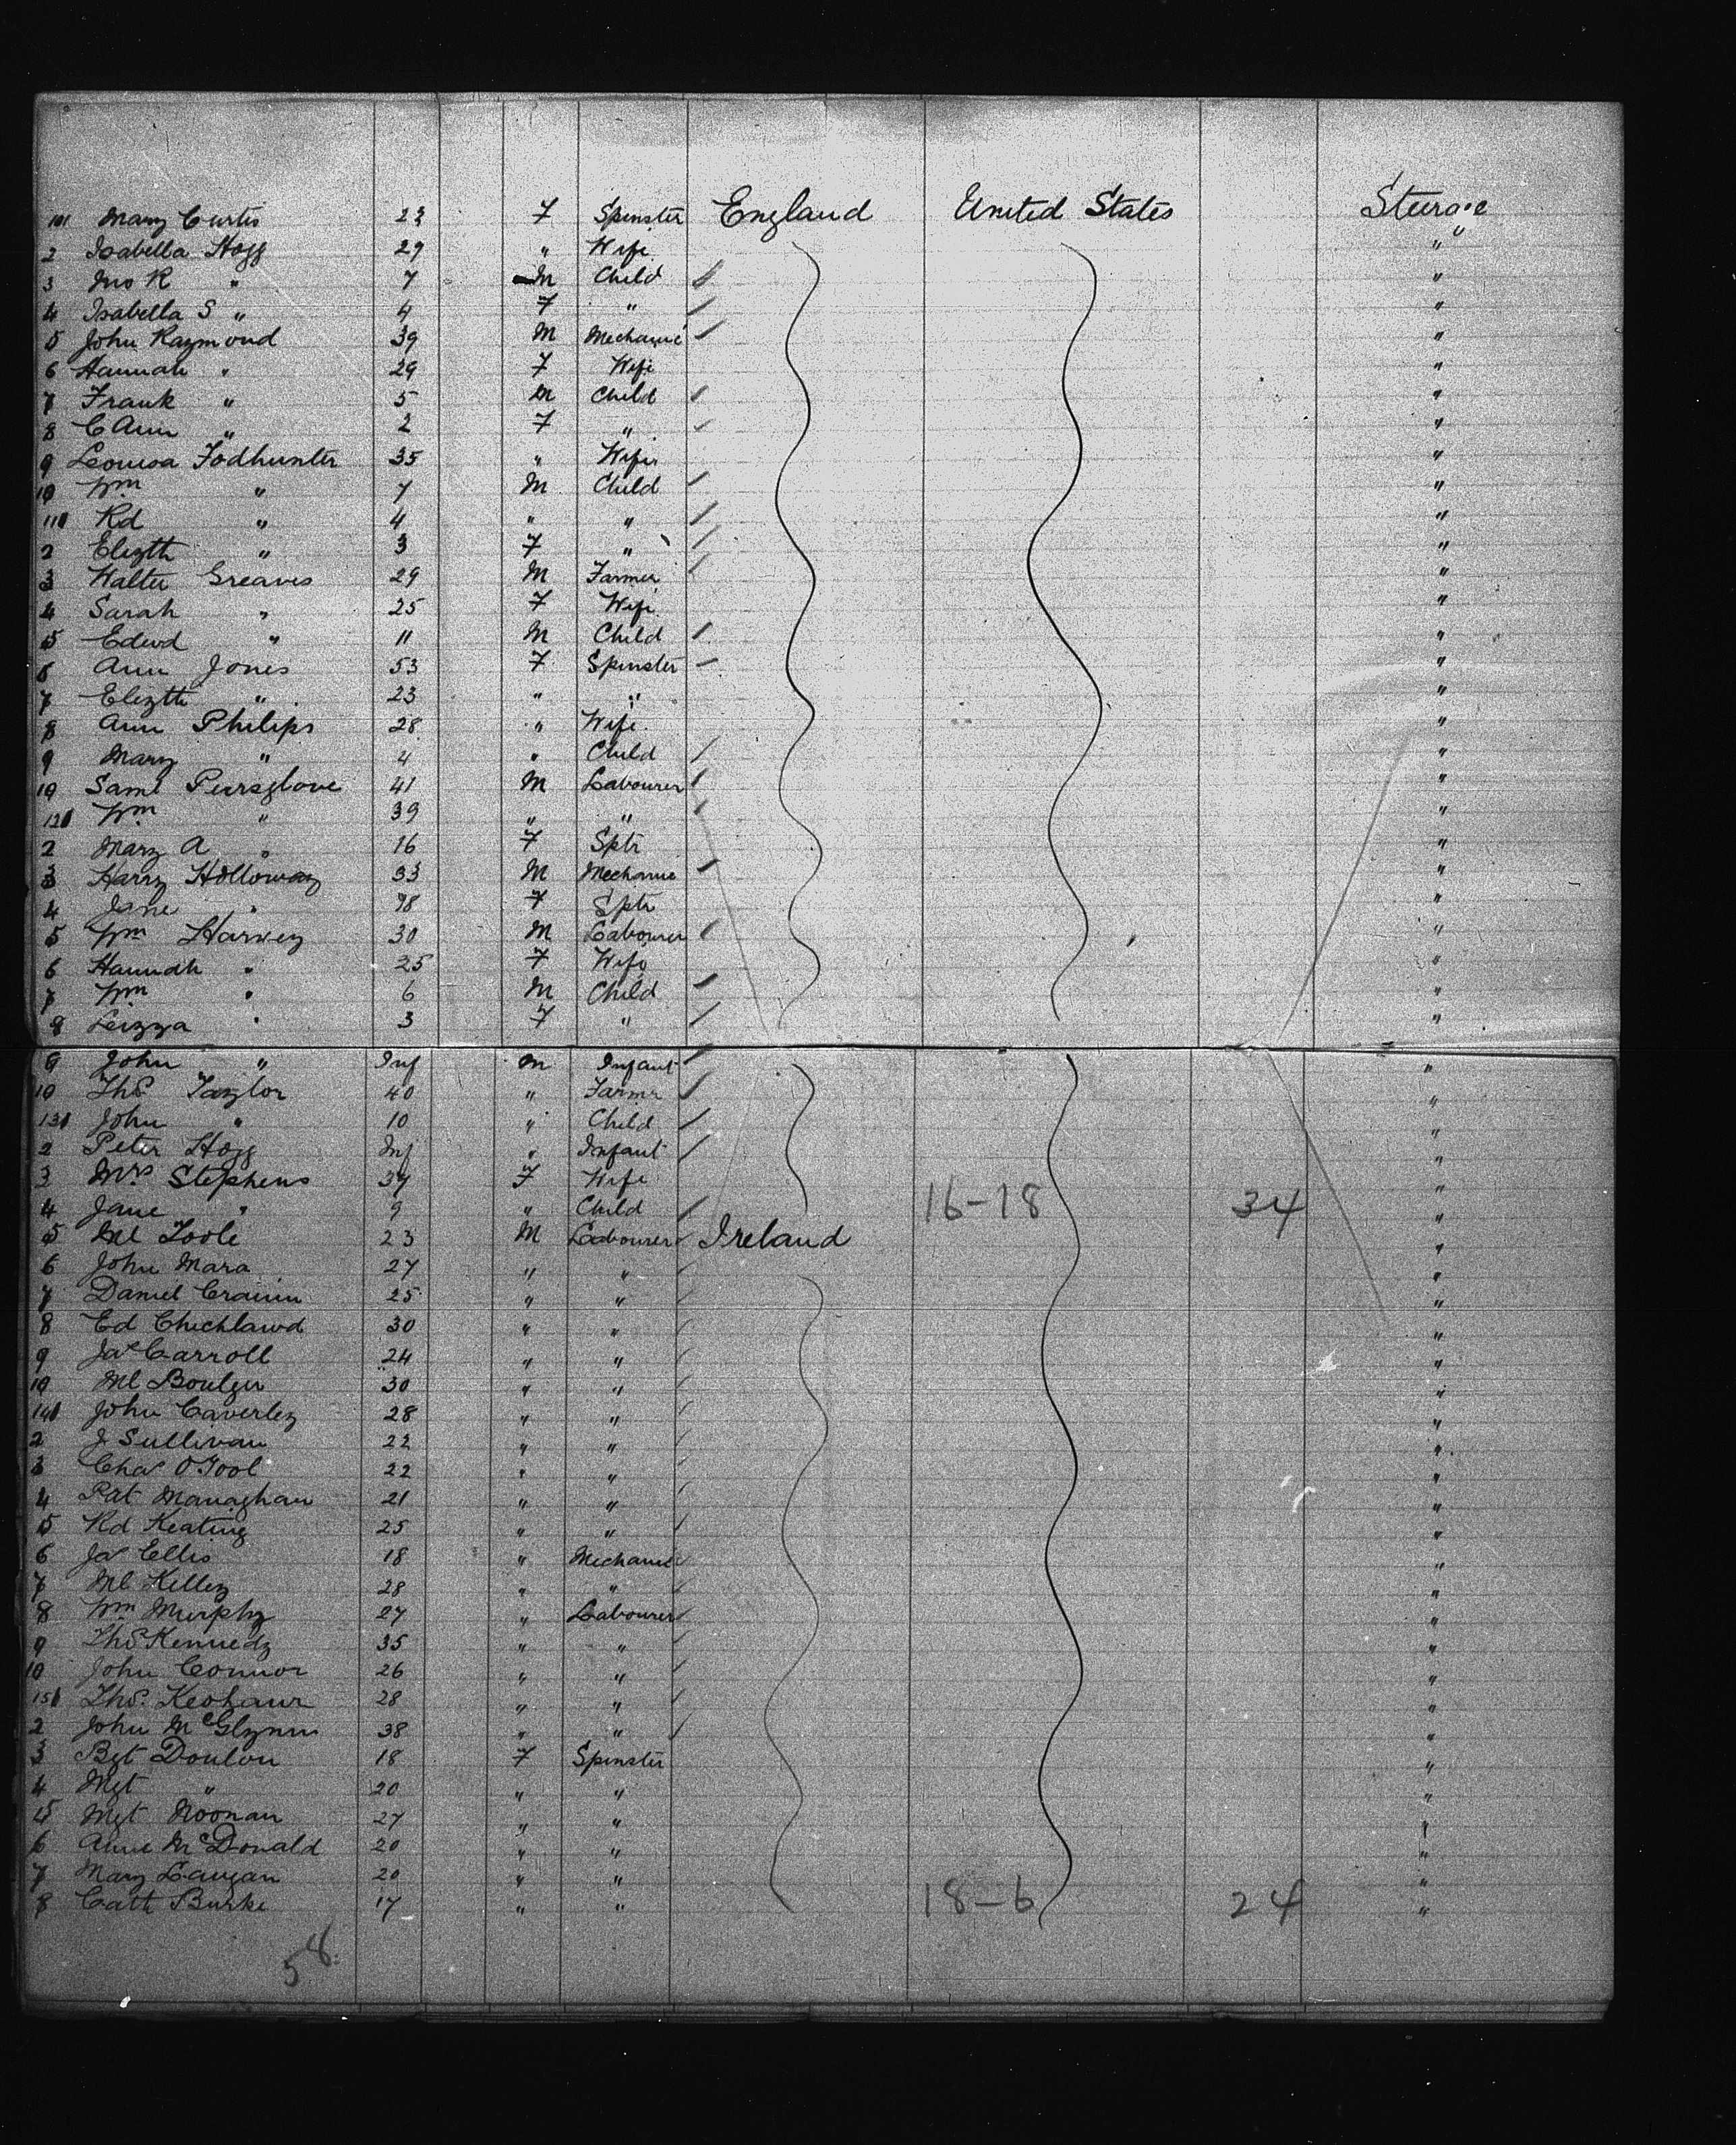 101 Mary Curtis 23 F Spinster England United States Steerage
2 Isabella Hogg 29 " Wife "
3 Jno R " 7 M Child "
4 Isabella S " 4 F " "
5 John Raymond 39 M Mechanic "
6 Hannah " 29 F Wife "
7 Frank " 5 M Child "
8 C Ann " 2 F " "
9 Louisa Todhunter 35 " Wife "
10 Wm " 7 M Child "
111 Rd " 4 " " "
2 Elizth " 3 F " "
3 Walter Greaves 29 M Farmer "
4 Sarah " 25 F Wife "
5 Edwd " 11 M Child "
6 Ann Jones 53 F Spinster "
7 Elizth " 23 " " "
8 Ann Philips 28 " Wife "
9 Mary " 4 " Child "
10 Saml Pursglove 41 M Labourer "
121 Wm " 39 " " "
2 Mary A " 16 F Sptr "
3 Harry Holloway 33 M Mechanic "
4 Jane " F Sptr "
5 Wm Harvey 30 M Labourer "
6 Hannah " 25 F Wife "
7 Wm " 6 M Child "
8 Leizza " 3 F " "
9 John " Inf M Infant "
10 Thos Taylor 40 " Farmr "
131 John " 10 " Child "
2 Peter Hogg Inf " Infant "
3 Mrs Stephens 37 F Wife "
4 Jane " 9 " Child 16-18 34 "
5 Ml Toole 23 M Labourer Ireland "
6 John Mara 27 " " "
7 Daniel 25 " " "
8 Ed 30 " " "
9 Jas Carroll 24 " " "
10 Ml Boulger 30 " " "
141 John Caverley 28 " " "
2 J Sullivan 22 " " "
3 Chas O Tool 22 " " "
4 Pat Managhan 21 " " "
5 Rd Keating 25 " " "
6 Jas Ellis 18 " Mechanic "
7 Ml Kelley 28 " " "
8 Wm Murphy 27 " Labourer "
9 Thos Kennedy 35 " " "
10 John Connor 26 " " "
151 Thos. Keohaur 28 " " "
2 John McGlynn 38 " " "
3 Bgt Donlon 18 F Spinster "
4 Mgt " 20 " " "
5 Mgt Noonan 27 " " "
6 Anne McDonald 20 " " "
7 Mary Laugan 20 " " "
8 Cath Burke 17 " " 18-6 24 "
58